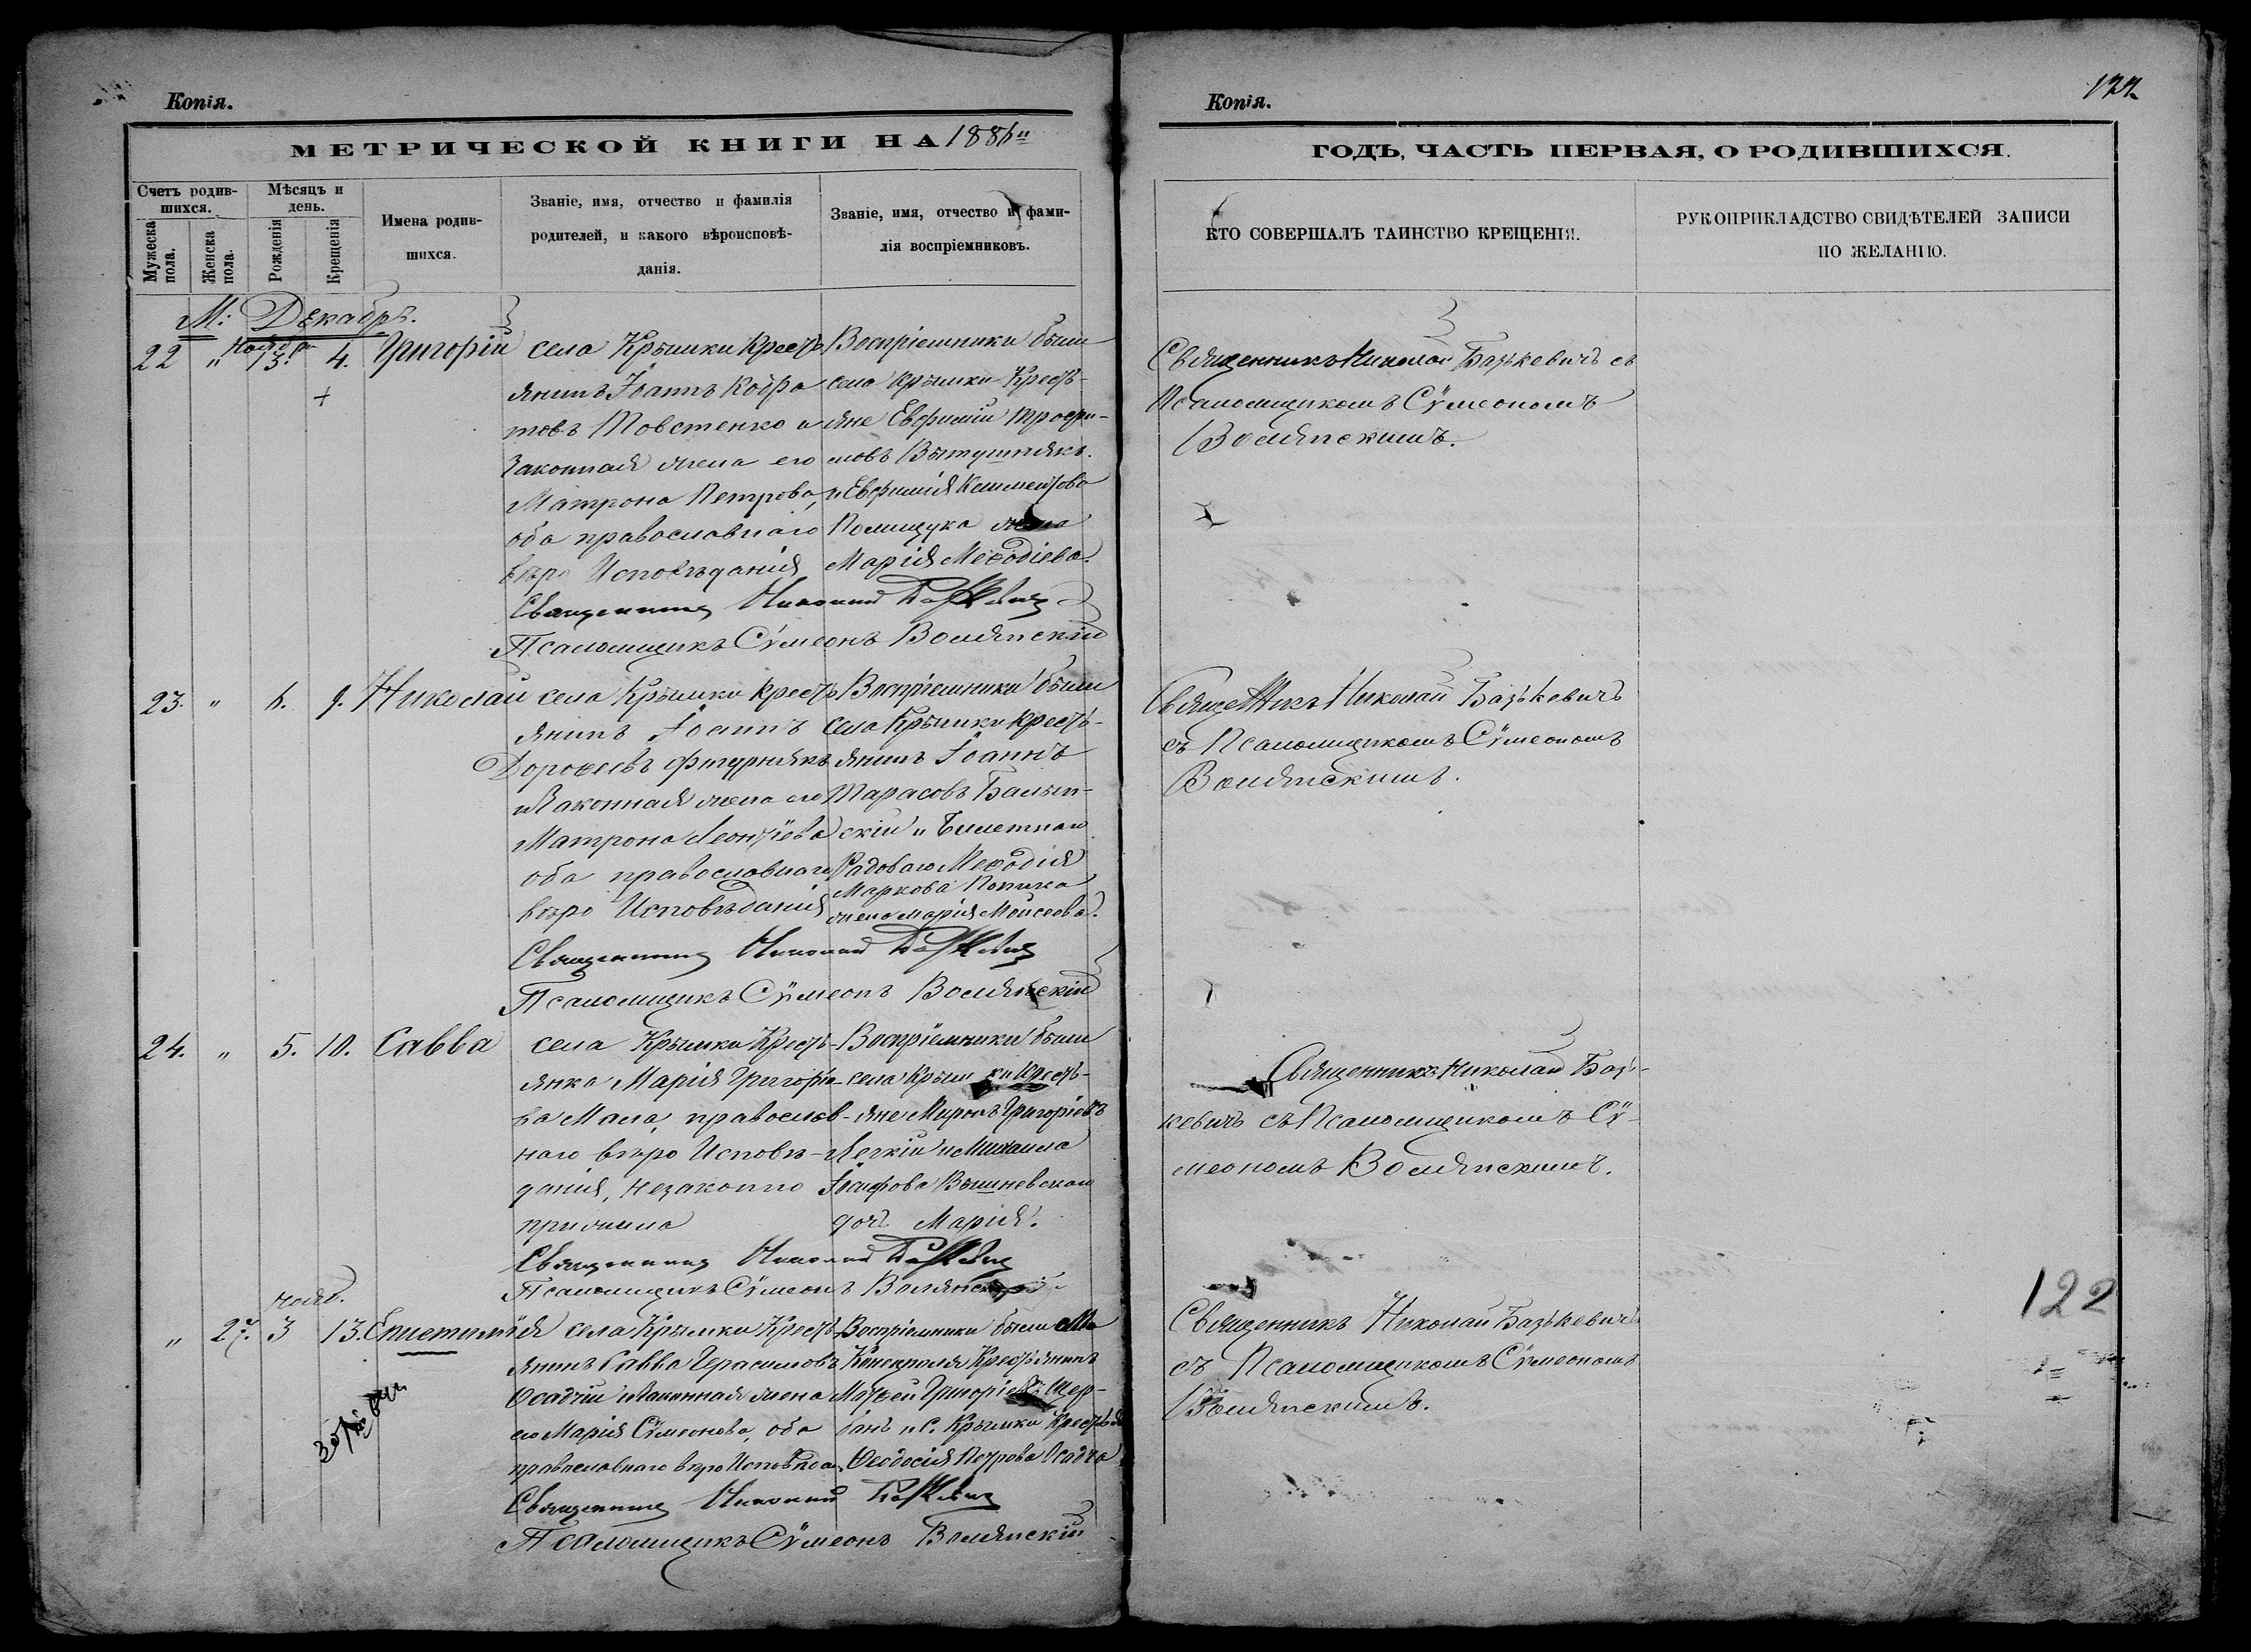 Копія.
МЕТРИЧЕСКОЙ КНИГИ НА 1886
Счетъ родив-
шихся.
Мѣсяцъ и
день.
Мужеска
пола.
Женска
пола.
Рожденія
Крещенія
Имена родив-
шихся.
Званіе, имя, отчество и фамилія
родителей, и какого вѣроисповѣ-
данія.
Званіе, имя, отчество и фами-
лія воспріемниковъ.
М: Декабрь.
22 " 13. 4. Григорій
села Крымки Кресть
янинъ Іоаннъ Кодра
товъ Товстенко и
Законная жена его
Матрона Петрова,
оба православнаго
вѣро Исповѣданія
Воспріемники были
села Крымки Кресть-
яне Евфимій Трофи-
мовъ
и Евфимія
Полищука жена
Марія Меѳодіева.
Священникъ Николай Базькевичъ
Псаломщикъ Сѵмеонъ Волянскій
23. " 6. 9. Николай
села Крымки Кресть
янинъ Іоаннъ
Дороѳеевъ Фигурнякъ
и Законная жена его
Матрона Леонтіева
оба православнаго
вѣро Исповѣданія
Воспріемники были
села Крымки Кресть-
янинъ Іоаннъ
Тарасовъ
скій и Билетнаго
Рядоваго Меѳодія
Маркова
жена Марія Моисеева.
Священникъ Николай Базькевичъ
Псаломщикъ Сѵмеонъ Волянскій
24. " 5. 10. Савва
села Крымки Кресть-
янка Марія Григоріе-
ва Мала, православ-
наго вѣро Исповѣ-
данія, незаконно
прижила
Воспріемники были
села Крымки Кресть-
яне Миронъ Григоріевъ
Легкій и Михаила
Іосифова Вышневскаго
дочь Марія.
Священникъ Николай Базькевичъ
Псаломщикъ Сѵмеонъ Волянскій
нояб.
" 27. 3 13. Епистимія
села Крымки Кресть-
янинъ Савва Герасимовъ
Осадчій и Законная жена
его Марія Сѵмеонова, оба
православнаго вѣро Исповѣда
Воспріемники были М.
Крестьянинъ
Григоріевъ Щер-
банъ и С. Крымки Крестья
Ѳеодосія Петрова Осадча
Священникъ Николай Базькевичъ
Псаломщикъ Сѵмеонъ Волянскій
Копія.
122
ГОДЪ, ЧАСТЬ ПЕРВАЯ, О РОДИВШИХСЯ.
КТО СОВЕРШАЛЪ ТАИНСТВО КРЕЩЕНІЯ.
РУКОПРИКЛАДСТВО СВИДѢТЕЛЕЙ ЗАПИСИ
ПО ЖЕЛАНІЮ.
Священникъ Николай Базькевичъ съ
Псаломщикомъ Сѵмеономъ
Волянскимъ.
Священникъ Николай Базькевичъ
съ Псаломщикомъ Сѵмеономъ
Волянскимъ.
Священникъ Николай Базь-
кевичъ съ Псаломщикомъ Сѵ-
меономъ Волянскимъ.
122
Священникъ Николай Базькевичъ
съ Псаломщикомъ Сѵмеономъ
Волянскимъ.